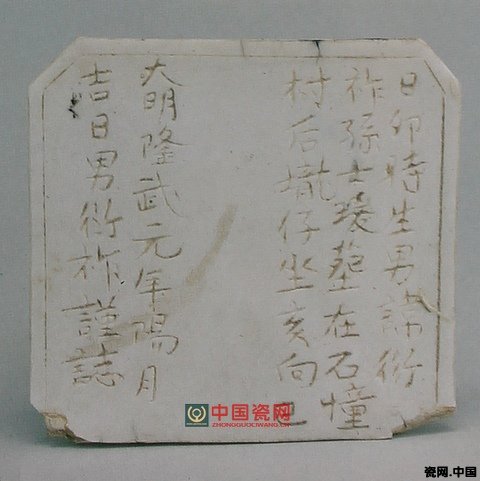 日卯時生男諱衍
祚孫士瑗塟在石憧
村后壠仔坐亥向巳
大明隆武元年陽月
吉日男衍祚謹誌
中国瓷网
ZHONGGUOCIWANG.CN
瓷网.中国